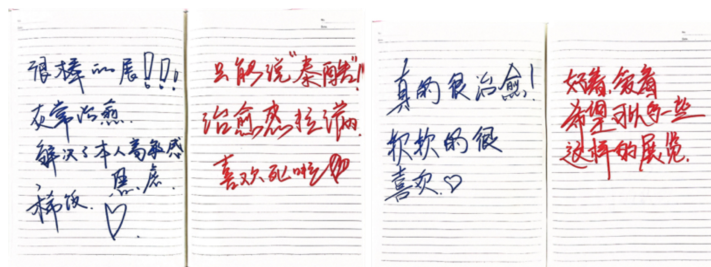 很棒的展!!!
非常治愈.
解决了本人高敏感
焦虑
梯饭.♡
只能说"泰酷"!!
治愈感拉满
喜欢死啦
真的很治愈!
软软的很
喜欢.♡
好看,爱看
希望可以多一些
这样的展览.